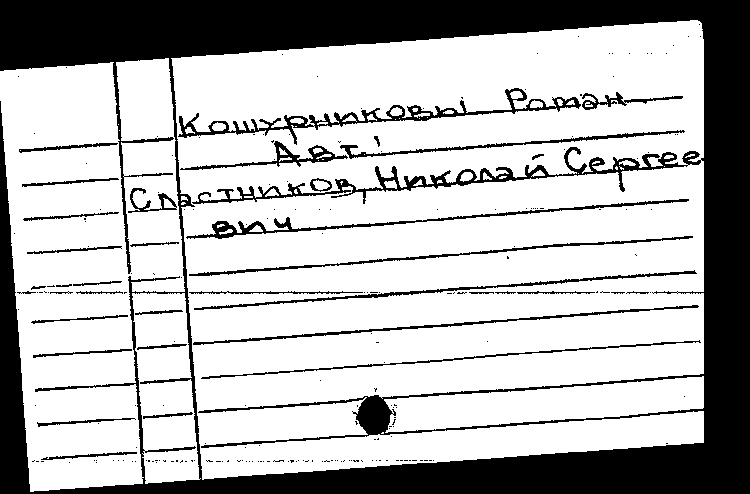 Кошурниковы Роман
Авт.:
Сластников, Николай Сергее
вич